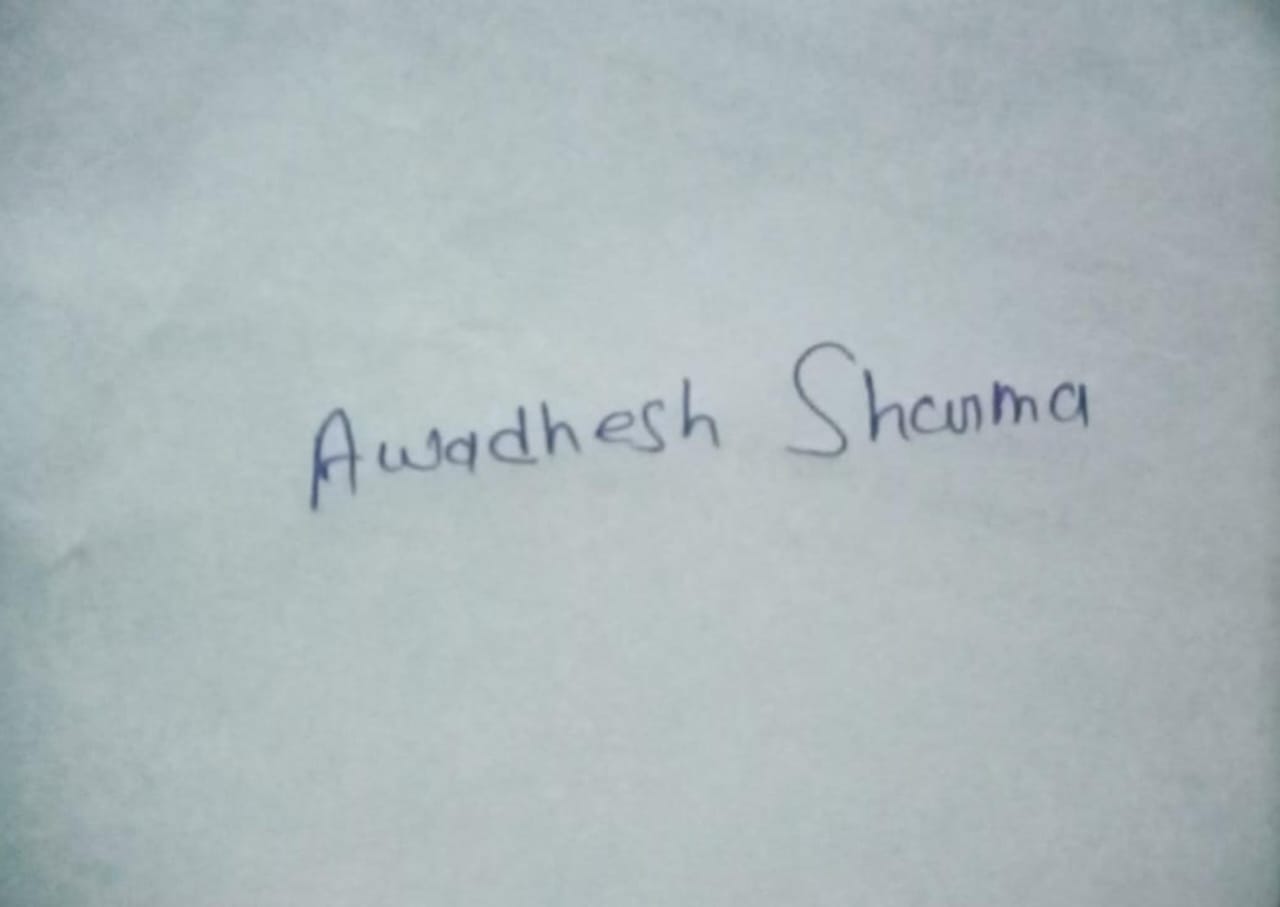 Awadhesh Sharma